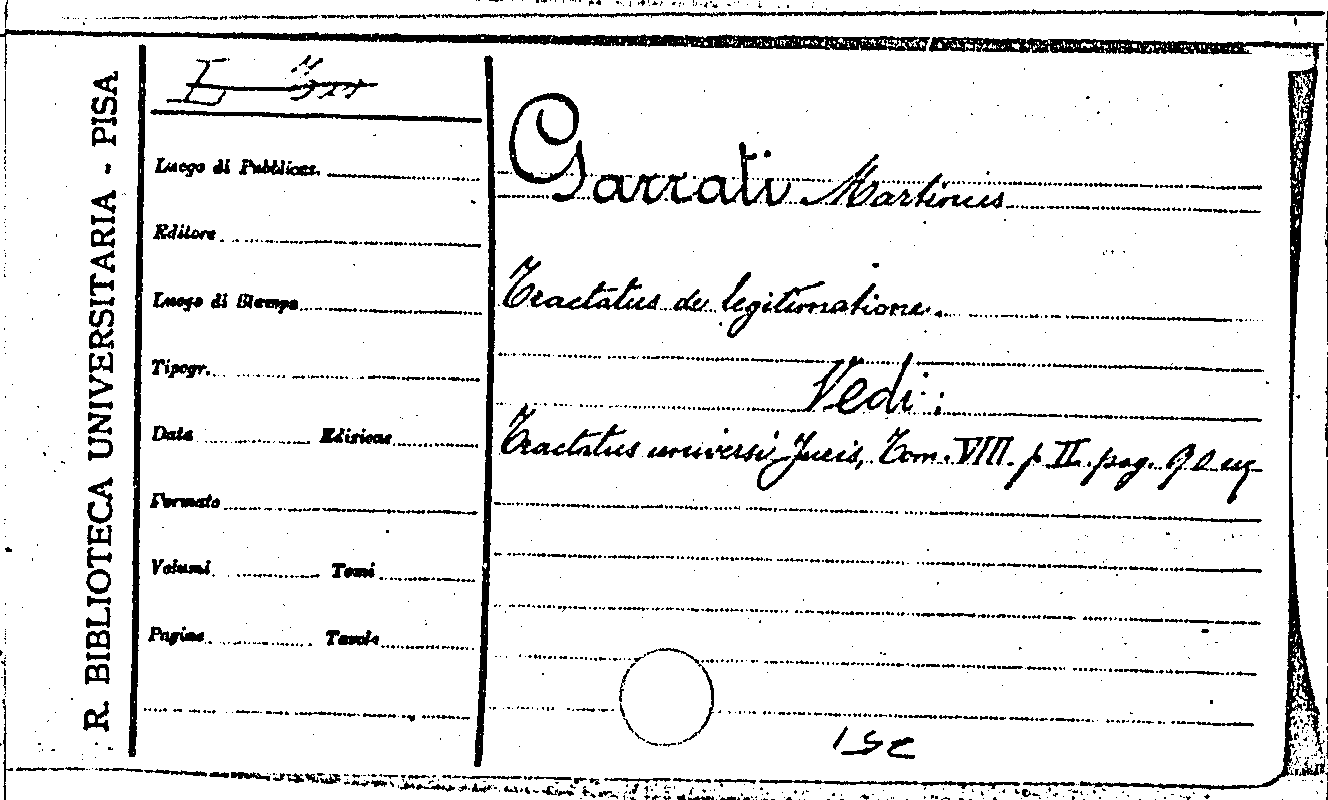 R. BIBLIOTECA UNIVERSITARIA - PISA
Luogo di Pubblicaz.
Editore
Luogo di Stampa
Tipogr.
Data Edizione
Formato
Volumi Tomi
Pagine Tavole
Garrati Martinus
Tractatus de legitimatione.
Vedi:
Tractatus universi Juris, Tom. VIII. p II. pag. 90